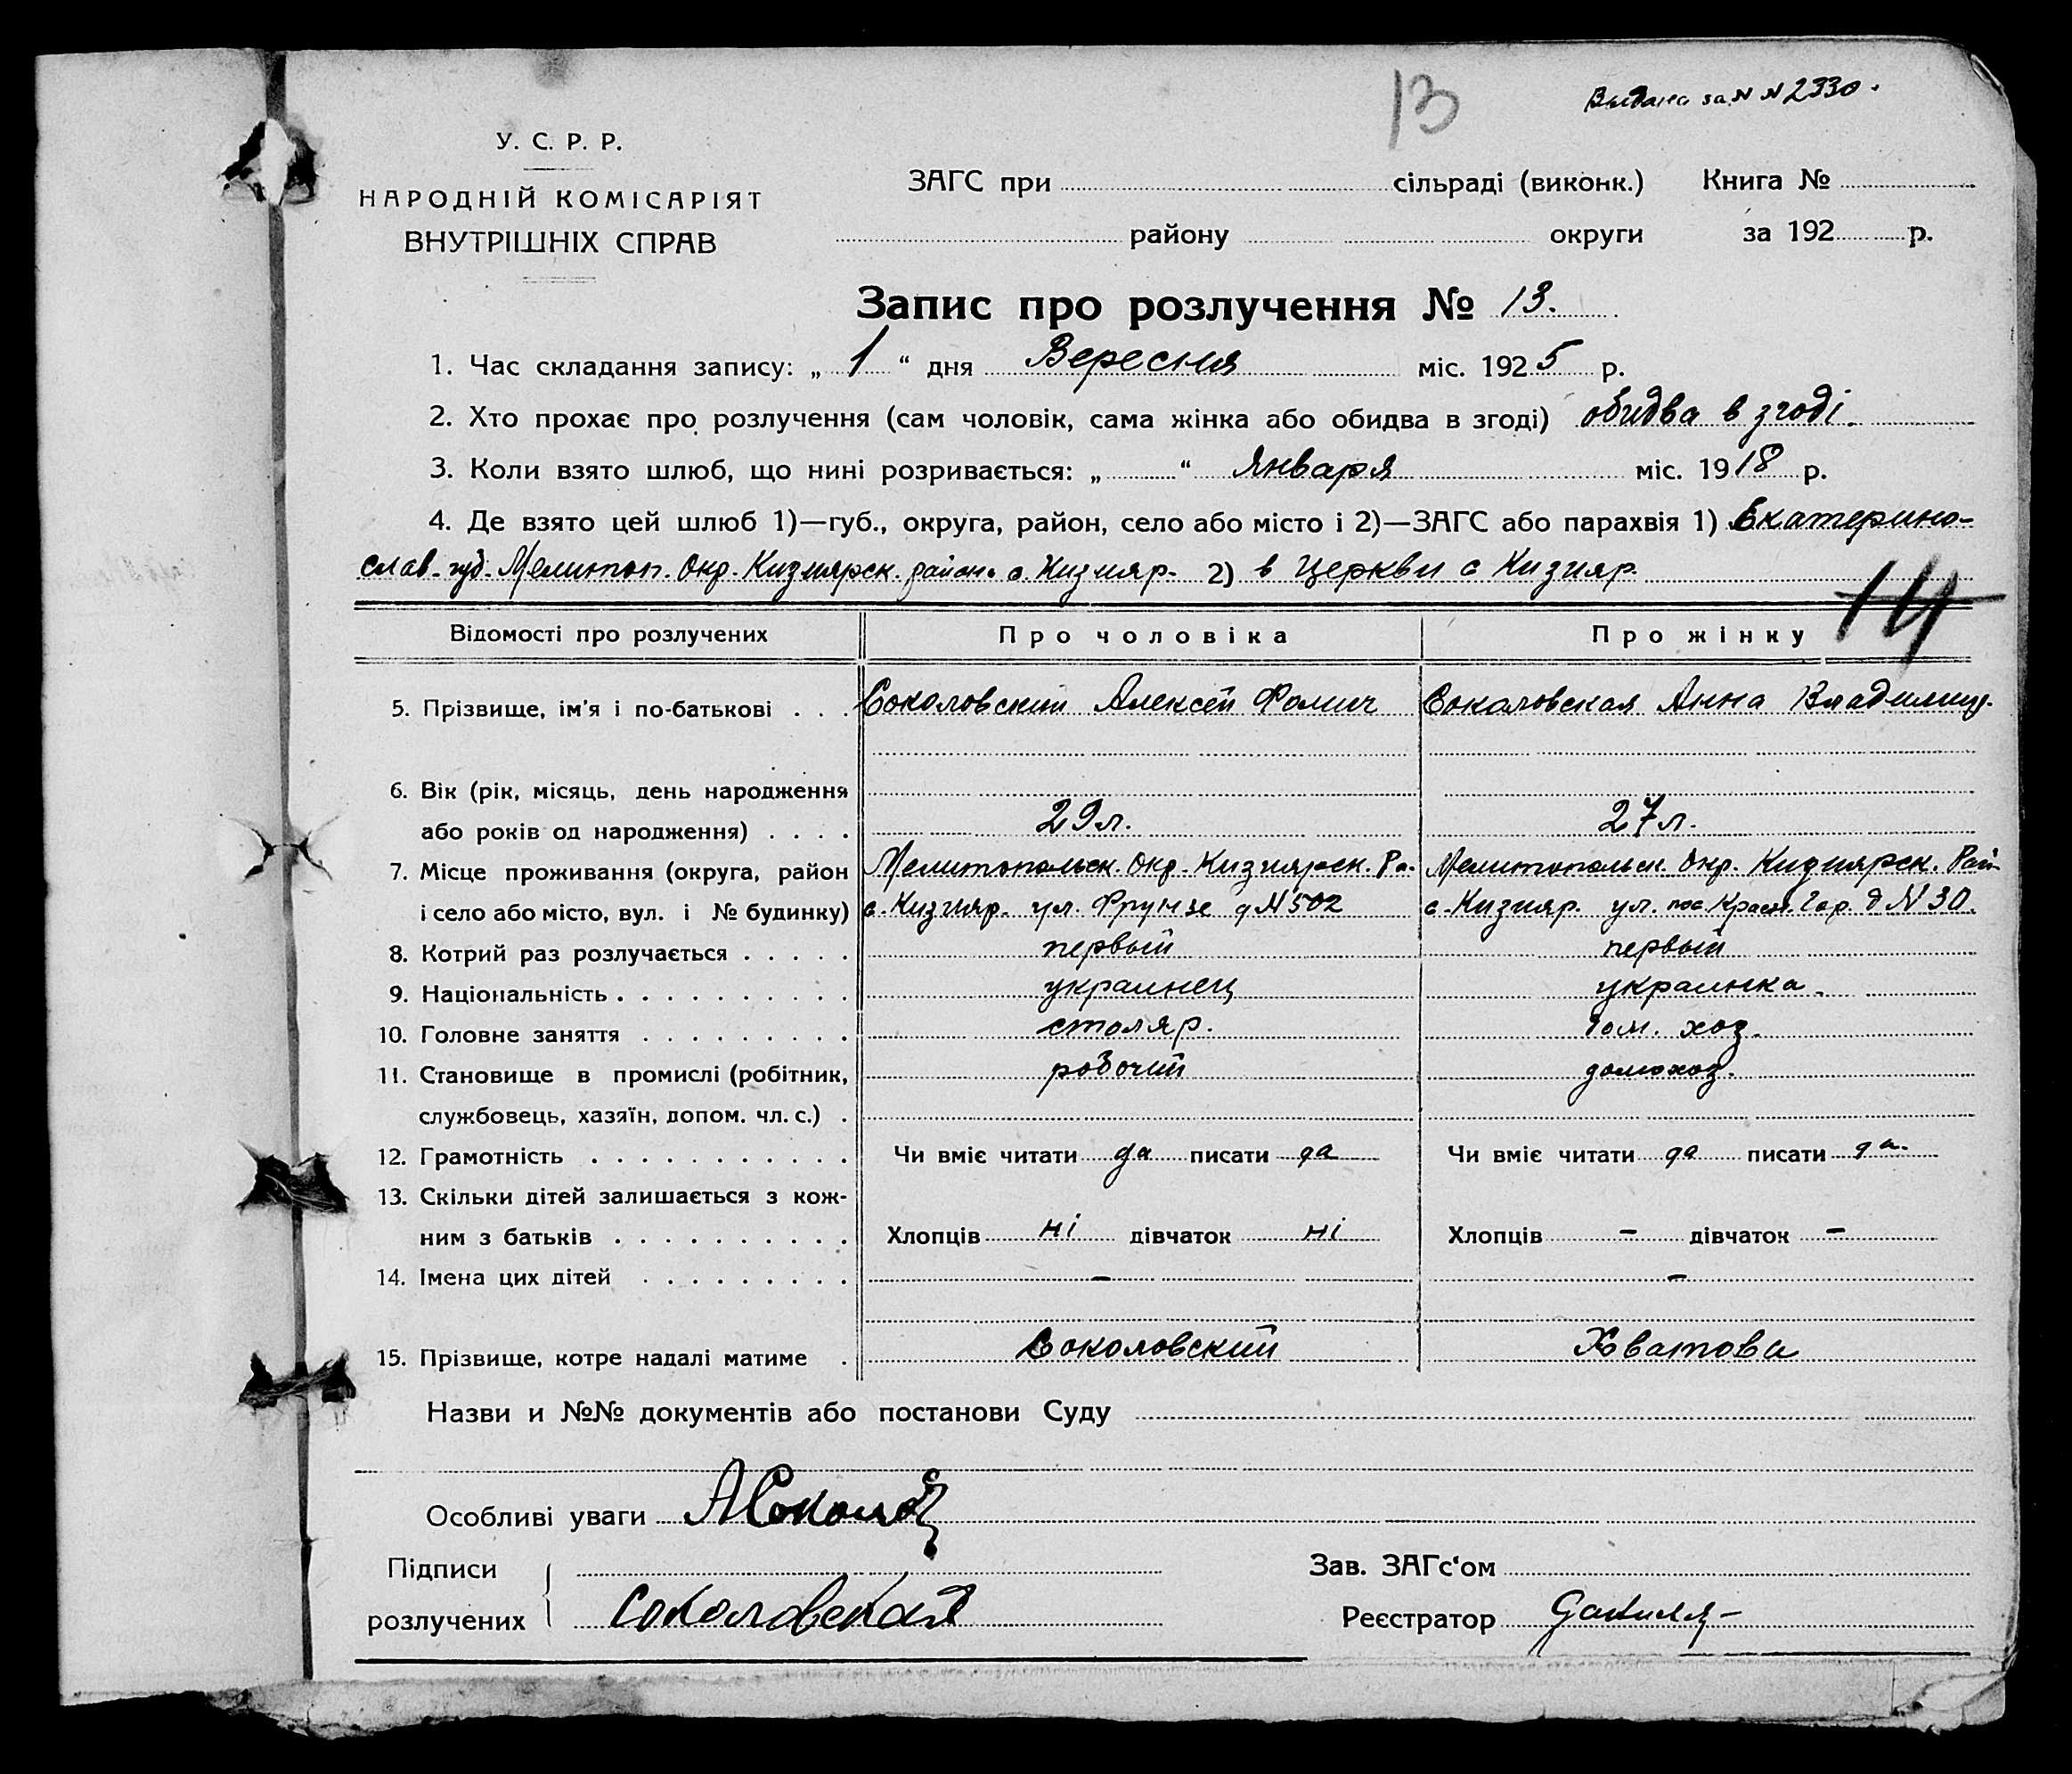 13
Выдана за N N 2330.
У. С. Р. Р.
НАРОДНІЙ КОМІСАРІЯТ
ВНУТРІШНІХ СПРАВ
ЗАГС при сільраді (виконк.) Книга №
району округи за 192 р.
Запис про розлучення № 13.
1. Час складання запису: „ 1 “ дня Вересня міс. 1925 р.
2. Хто прохає про розлучення (сам чоловік, сама жінка або обидва в згоді) обидва в згоді.
3. Коли взято шлюб, що нині розривається: „ “ Января міс. 1918 р.
4. Де взято цей шлюб 1)—губ., округа, район, село або місто і 2)—ЗАГС або парахвія 1) Екатерино-
слав. губ. Мелитоп. Окр. Кизиярск. района с. Кизияр. 2) в Церкви с Кизияр.
14
Відомості про розлучених Про чоловіка Про жінку
5. Прізвище, ім'я і по-батькові . . . Соколовский Алексей Фомич Соколовская Анна
6. Вік (рік, місяць, день народження
або років од народження) . . . . 29 л. 27 л.
7. Місце проживання (округа, район Мелитопольск. Окр. Кизиярск. Ра. Мелитопольск. Окр. Кизиярск. Рай-
і село або місто, вул. і № будинку) с. Кизияр. ул. Фрунзе д N 502 с. Кизияр. ул. д N 30.
8. Котрий раз розлучається . . . . . первый первый
9. Національність . . . . . . . . . . украинец украинка.
10. Головне заняття . . . . . . . . . столяр. дом. хоз.
11. Становище в промислі (робітник, робочий домохоз.
службовець, хазяїн, допом. чл. с.) .
12. Грамотність . . . . . . . . . . . Чи вміє читати да писати да Чи вміє читати да писати да.
13. Скільки дітей залишається з кож-
ним з батьків . . . . . . . . . . Хлопців ні дівчаток ні Хлопців – дівчаток –
14. Імена цих дітей . . . . . . . . . – –
15. Прізвище, котре надалі матиме . Соколовский Хватова
Назви и №№ документів або постанови Суду
Особливі уваги
Підписи Зав. ЗАГс‘ом
розлучених Соколовская Реєстратор